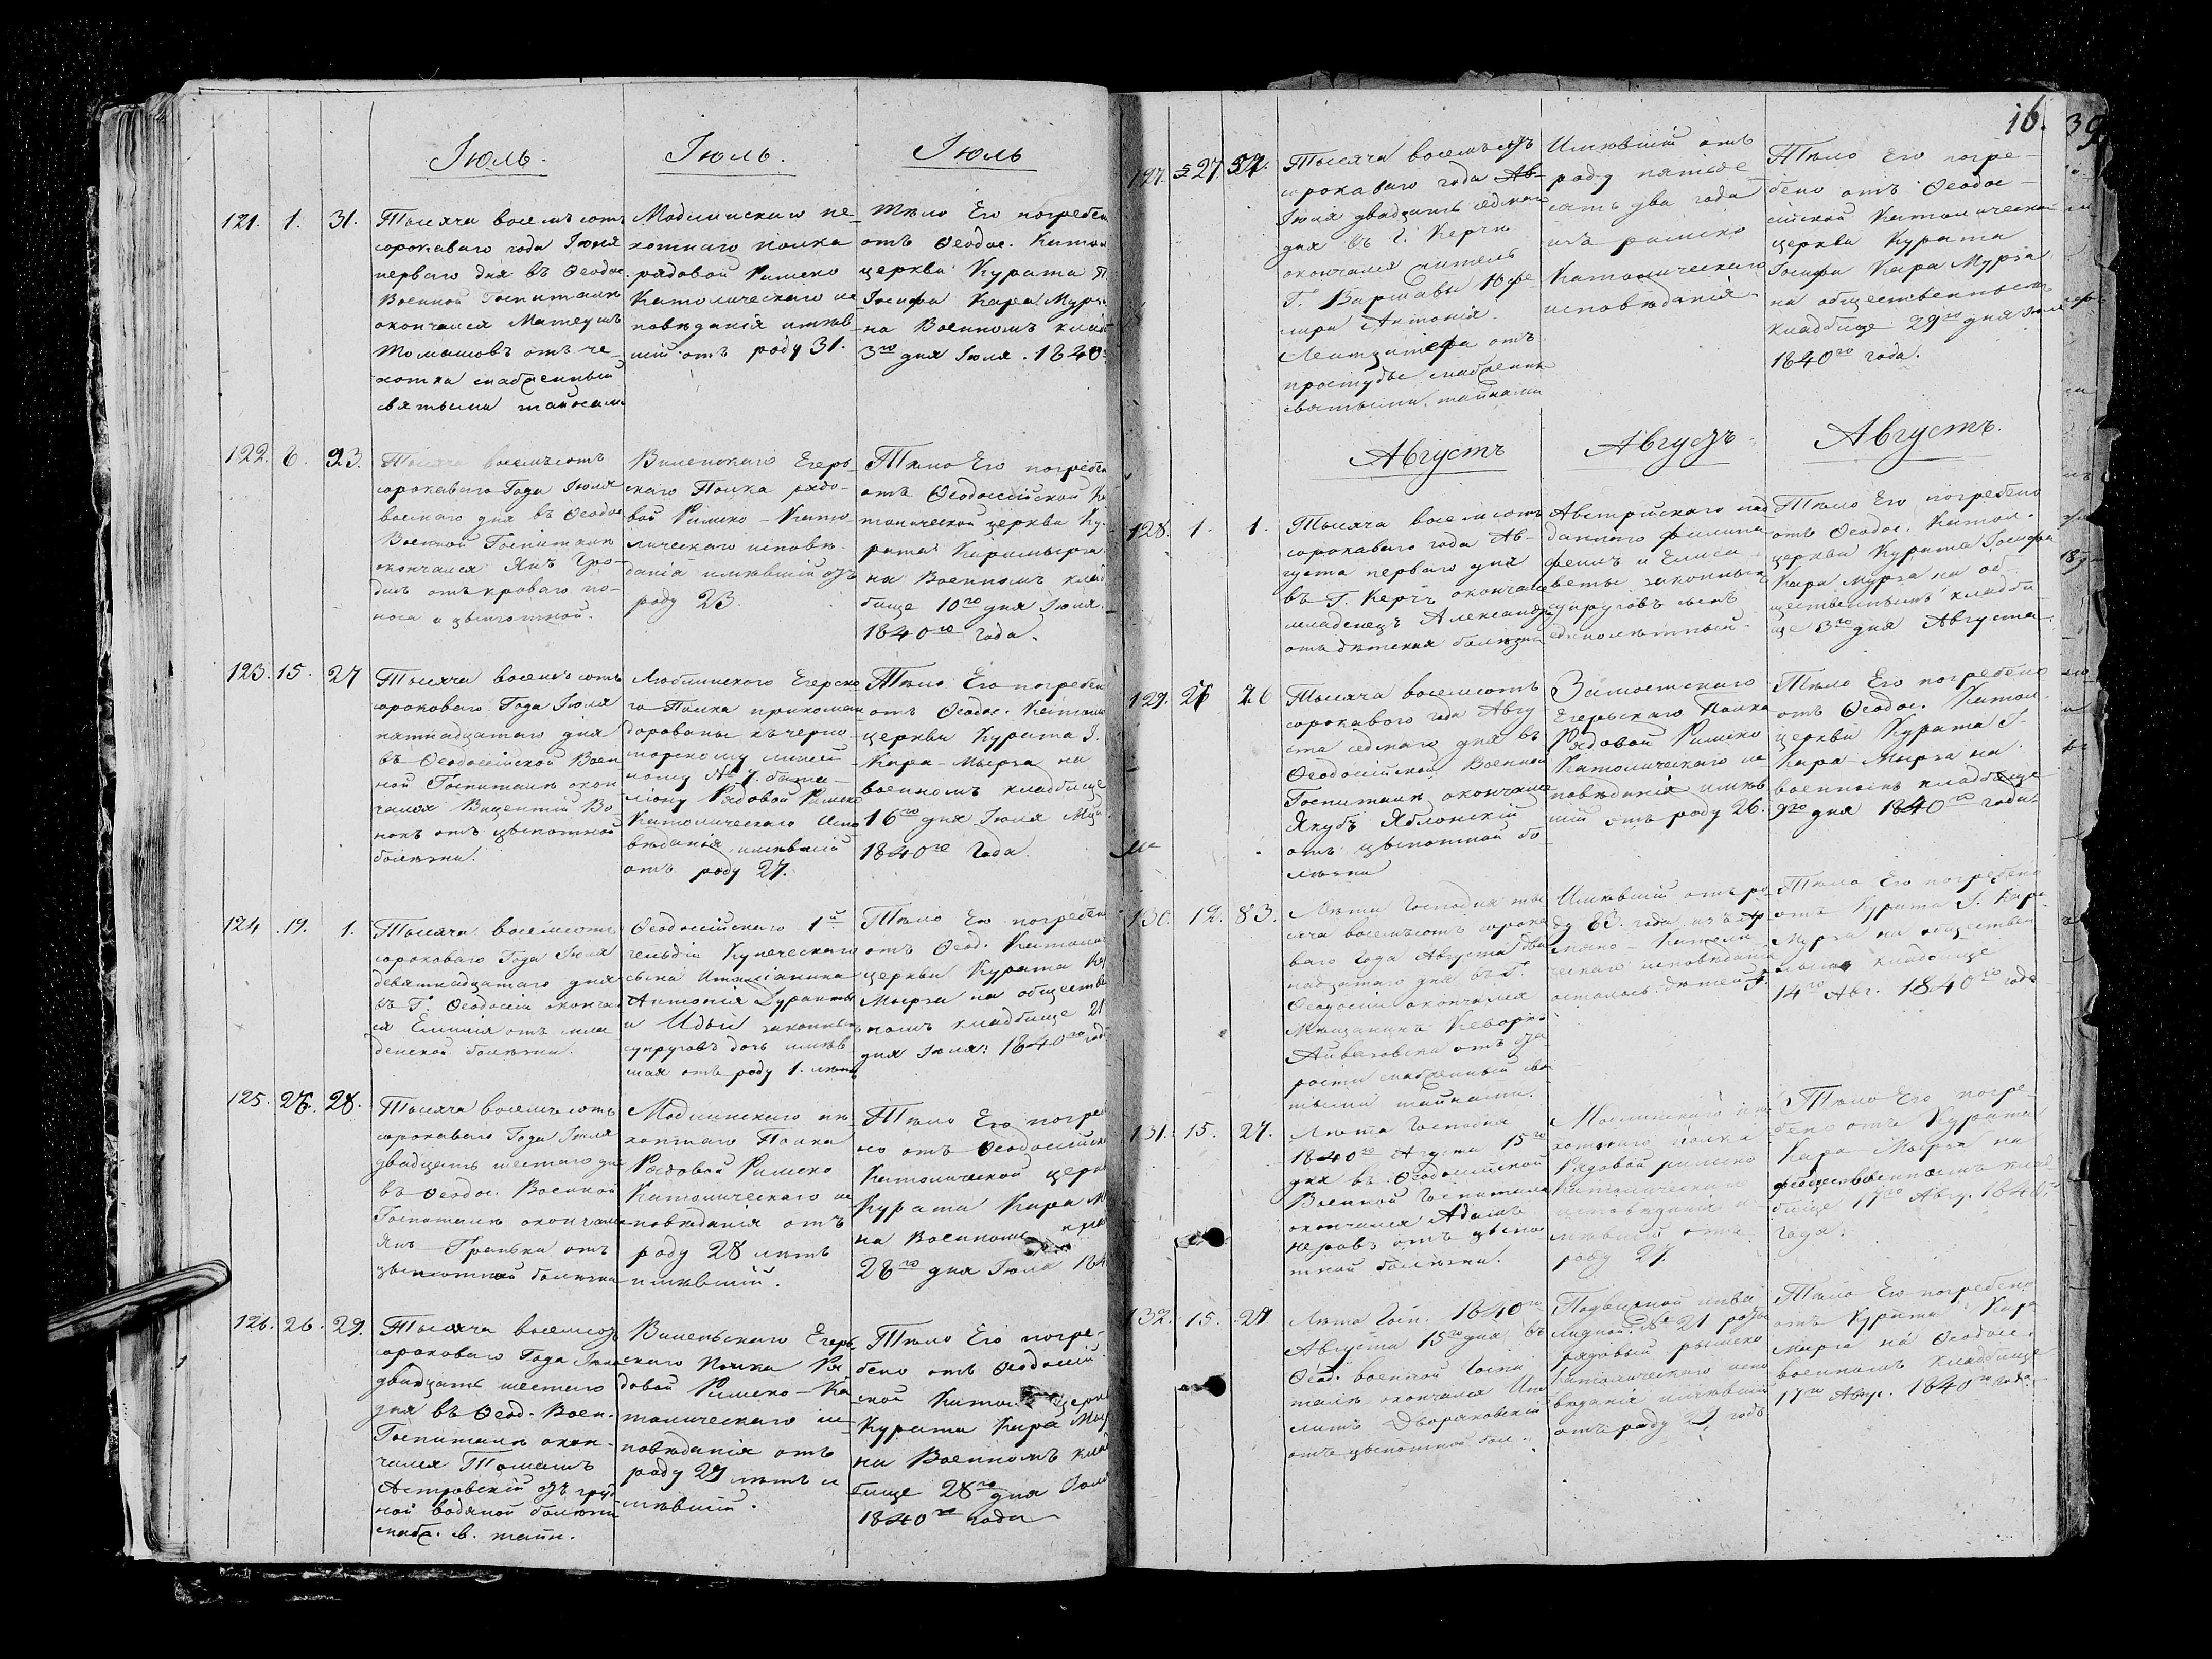 Іюль.
Іюль.
Іюль
121. 1. 31.
Тысяча восемьсотъ
сороковаго года Іюля
перваго дня въ Ѳеодос
Военной Госпиталѣ
окончался Матеушъ
Томашовъ отъ че-
хотки снабженный
святыми тайнами
Модлинскаго пе-
хотнаго полка
рядовой Римско
Католическаго ис
повѣданія имѣв
шій отъ роду 31.
Тѣло Его погребен
отъ Ѳеодос. Катол
церкви Курата
Іосифа Кара Мурз
на Военномъ клад
3го дня Іюля. 1840
122. 6. 23.
Тысяча восемьсотъ
сороковаго Года Іюля
дня въ Ѳеодос
Военной Госпиталѣ
окончался Янъ
отъ кроваго по-
носа и цынготной.
Виленскаго Егерь
скаго Полка рядо-
вой Римско-Като-
лическаго исповѣ-
данія имѣвшій отъ
роду 23.
Тѣло Его погребен
отъ Ѳеодосійской Ка
толической церкви Ку-
рата Карамырза
на Военномъ клад
бище 10го дня Іюля.
1840го года.
123. 15. 27
Тысяча восемьсотъ
сороковаго Года Іюля
пятнадцатаго дня
въ Ѳеодосійской Воен
ной Госпиталѣ окон
чался Вицентій Во
отъ цынготной
болѣзни.
Люблинскаго Егерска
го Полка прикоман
дированы къ черно-
морскому линей
ному № 7. бата-
ліону Рядовой Римско
Католическаго Испо
вѣданія имѣвшій
отъ роду 27.
Тѣло Его погребен
отъ Ѳеодос. Катол
церкви Курата І.
Кара-Мырза на
военномъ кладбище
16го дня Іюля
1840го Года.
124. 19. 1.
Тысяча восемьсотъ
сороковаго Года Іюля
девятнадцатаго дня
въ Г. Ѳеодосіи оконча
ся Емилія отъ мла
денской болѣзни.
Ѳеодосійскаго 1й
гильдіи Купеческаго
сына Италіанина
Антонія Дуранты
и Иды законныхъ
супруговъ дочь имѣв
шая отъ роду 1. лѣта
Тѣло Ею погребен
отъ Ѳеод. Католи
церкви Курата Кар
Мырза на обществе
номъ кладбище 21
дня Іюля: 1840го год
125. 26. 28.
Тысяча восемьсотъ
сороковаго Года Іюля
двадцать шестаго дн
въ Ѳеодос. Военной
Госпиталѣ окончал
Янъ Гранька отъ
цынготной болѣзни
Модлинскаго пѣ
хотнаго Полка
Рядовой Римско
Католическаго ис
повѣданія отъ
роду 28 лѣтъ
имѣвшій.
Тѣло Его погре
но отъ Ѳеодосійск
Католической церкв
Курата Кара М
на Военномъ клад
28го дня Іюля 184
126. 26. 29.
Тысяча восемсот
сороковаго Года Іюл
двадцать шестаго
дня въ Ѳеод. Воен.
Госпиталѣ окон-
чался Томашъ
Астровскій отъ груд
ной водяной болѣзни
снабж. св. тайн.
Виленьскаго Егерь
скаго Полка Ря
довой Римско-Ка
толическаго ис-
повѣданія отъ
роду 29 лѣтъ и
мѣвшій.
Тѣло Его погре-
бено отъ Ѳеодосій
ской Катол. церкв
Курата Кара Мыр
на Военномъ клад
бище 28го дня Іюля
1840го года
16. 39
127. 27. 52.
Тысяча восемьсотъ
сороковаго года Ав-
Іюля двадцать седмаго
дня въ г. Керчи
окончался житель
Г. Варшавы Юве-
лиръ Антоній
отъ
простуды снабженный
святыми тайнами
Имѣвшій отъ
роду пятьде
сятъ два года
изъ римско
Католическаго
исповѣданія.
Тѣло Его погре-
бено отъ Ѳеодос-
сійской Католической
церкви Курата
Іосифа Кара Мурза
на общественномъ
кладбище 29го дня Іюля
1840го года.
Августъ
Августъ
Августъ.
128. 1. 1.
Тысяча восемсотъ
сороковаго года Ав-
густа перваго дня
въ Г. Керчѣ окончался
младенецъ Александръ
отъ дѣтскія болѣзни
Австрійскаго под
даннаго
и Елиса
веты законныхъ
супруговъ сынъ
еднолѣтный.
Тѣло Его погребено
отъ Ѳеодос. Катол.
церкви Курата Іосифа
Кара Мурза на об
щественнымъ кладби
ще 3го дня Августа.
129. 26
Тысяча восемсотъ
сороковаго года Авгу
ста седмаго дня въ
Ѳеодосійской Военной
Госпиталѣ окончался
Якубъ Яблонскій
отъ цынготной бо
лѣзни
Замостскаго
Егерьскаго Полка
Рядовой Римско
Католическаго ис
повѣданія имѣв
шій отъ роду 26.
Тѣло Его погребено
отъ Ѳеодос. Катол.
церкви Курата І.
Кара-Мырза на
военномъ кладбище
9го дня 1840го года.
130. 12. 83.
Лѣта Господня ты
сяча восемьсотъ сороко
ваго года Августа два
надцатаго дня въ Г.
Ѳеодосіи окончался
Мѣщанинъ Кеворкъ
Айвазовскій отъ ста
рости снабженный свя
тыми тайнами.
Имѣвшій отъ ро
ду 83. года изъ ар
мяно-Католи
ческаго исповѣданія
осталось дѣтей
Тѣло Его погребено
отъ Курата І. Кара
Мурза на обществен
номъ кладбище
14го Авг. 1840го года
131. 15. 27.
Лѣта Господня
1840го Августа 15го
дня въ Ѳеодосійской
Военной Госпиталѣ
окончался Адамъ
отъ цынго
тной болѣзни.
Модлинскаго пѣ
хотнаго полка
Рядовой римско
Католическаго
исповѣданія и
мѣвшій отъ
роду 27.
Тѣло Его погре-
бено отъ Курата
Кара Мырза на
общественномъ клад
бище 17го Авгу. 1840го
года.
132. 15. 29
Лѣта Госп. 1840го
Августа 15го дня въ
Ѳеод. военной Госпи
талѣ окончался
Двораковскій
отъ цынготной бол.
Подвижной инва
лидной № 21 роты
рядовый римско
католическаго испо
вѣданія имѣвшій
отъ роду 29 годъ
Тѣло Его погребено
отъ Курата Кара
мырза на Ѳеодос.
военномъ кладбище
17го Авгу. 1840го года